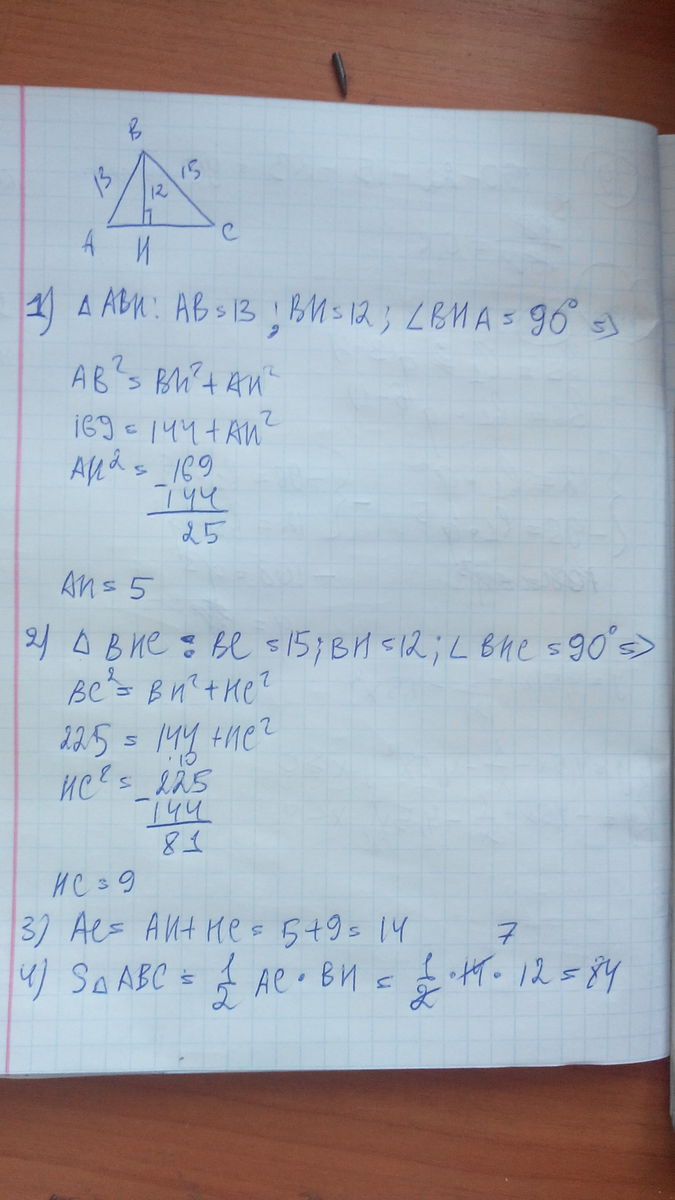 B
13 12 15
A H C
1) △ ABH: AB = 13 ; BH = 12 ; ∠BHA = 90° =>
AB² = BH² + AH²
169 = 144 + AH²
AH² = -169
144
25
AH = 5
2) △ BHC : BC = 15 ; BH = 12 ; ∠ BHC = 90° =>
BC² = BH² + HC²
225 = 144 + HC²
10
HC² = -225
144
81
HC = 9
3) AC = AH + HC = 5 + 9 = 14
7
4) S△ABC = 1/2 AC · BH = 1/2 · 14 · 12 = 84